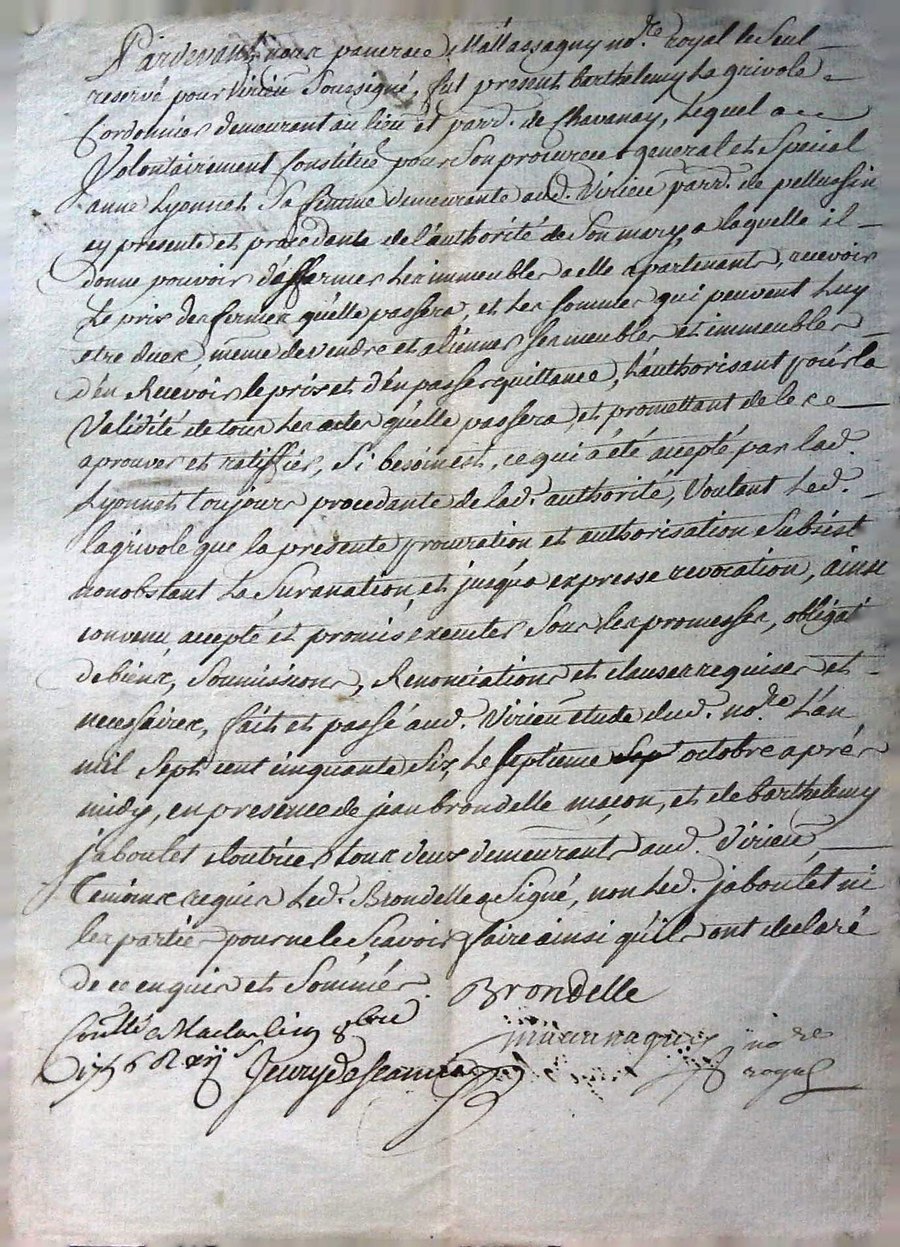 Pardevant nous pancrace Mallassagny no.re royal le Seul
reservé pour Virieu Soussigné, fut present barthelemy Lagrivole
Cordonnier demeurant au lieu et parr. de Chavanay, Lequel a
Volontairement Constitué pour Son procureur general et Special
anne Lyonnet Sa femme demeurante aud. Virieu parr. de pellussin
cy presente et procedante de l'authorité de Son mary, a laquelle il
donne pouvoir d'affermer Les immeubles a elle apartenants, recevoir
Le pris des fermes qu'elle passera, et Les Sommes qui peuvent Luy
etre dues, meme de vendre et aliener Ses meubles et immeubles
d'en Recevoir le pris et d'en passer quittance, L'authorisant pour la
Validité de tous Les actes qu'elle passera, et promettant de les
aprouver et ratiffier, Si besoin est, ce qui a été accepté par lad.
Lyonnet toujours procedante de lad. authorité, Voulant Led.
lagrivole que la presente procuration et authorisation Subsist
nonobstant La Suranation et jusqu'a expresse revocation, ainsi
convenu, accepté et promis executer Sous les promesses, obligat
de biens, Soumissions, Renonciations et clauses requises et
necessaires, fait et passé aud. Virieu etude dud. no.re L'an
mil Sept cent cinquante Six, Le Septieme octobre aprés
midy, en presence de jean brondelle maçon, et de barthelemy
jaboulet cloutrier tous deux demeurants aud. Virieu
Temoins requis Led. Brondelle a Signé, non Led. jaboulet ni
les parties pour ne le Scavoir faire ainsi qu'ils ont declaré
de ce enquis et Sommés.
Brondelle
Con.llé a Maclas le 8bre
1756 R
no.re
royal